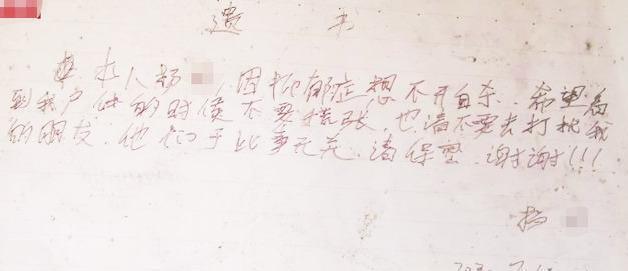 遗 书
本人杨 ,因抑郁症想不开自杀.希望看
到我尸体的时候不要慌张,也请不要去打扰我
的朋友.他们于此事无关.请保密.谢谢!!!
杨